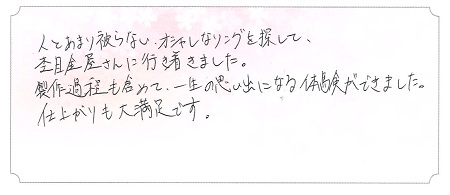 人とあまり被らない、オシャレなリングを探して、
杢目金屋さんに行き着きました。
製作過程も含めて、一生の思い出になる体験ができました。
仕上がりも大満足です。